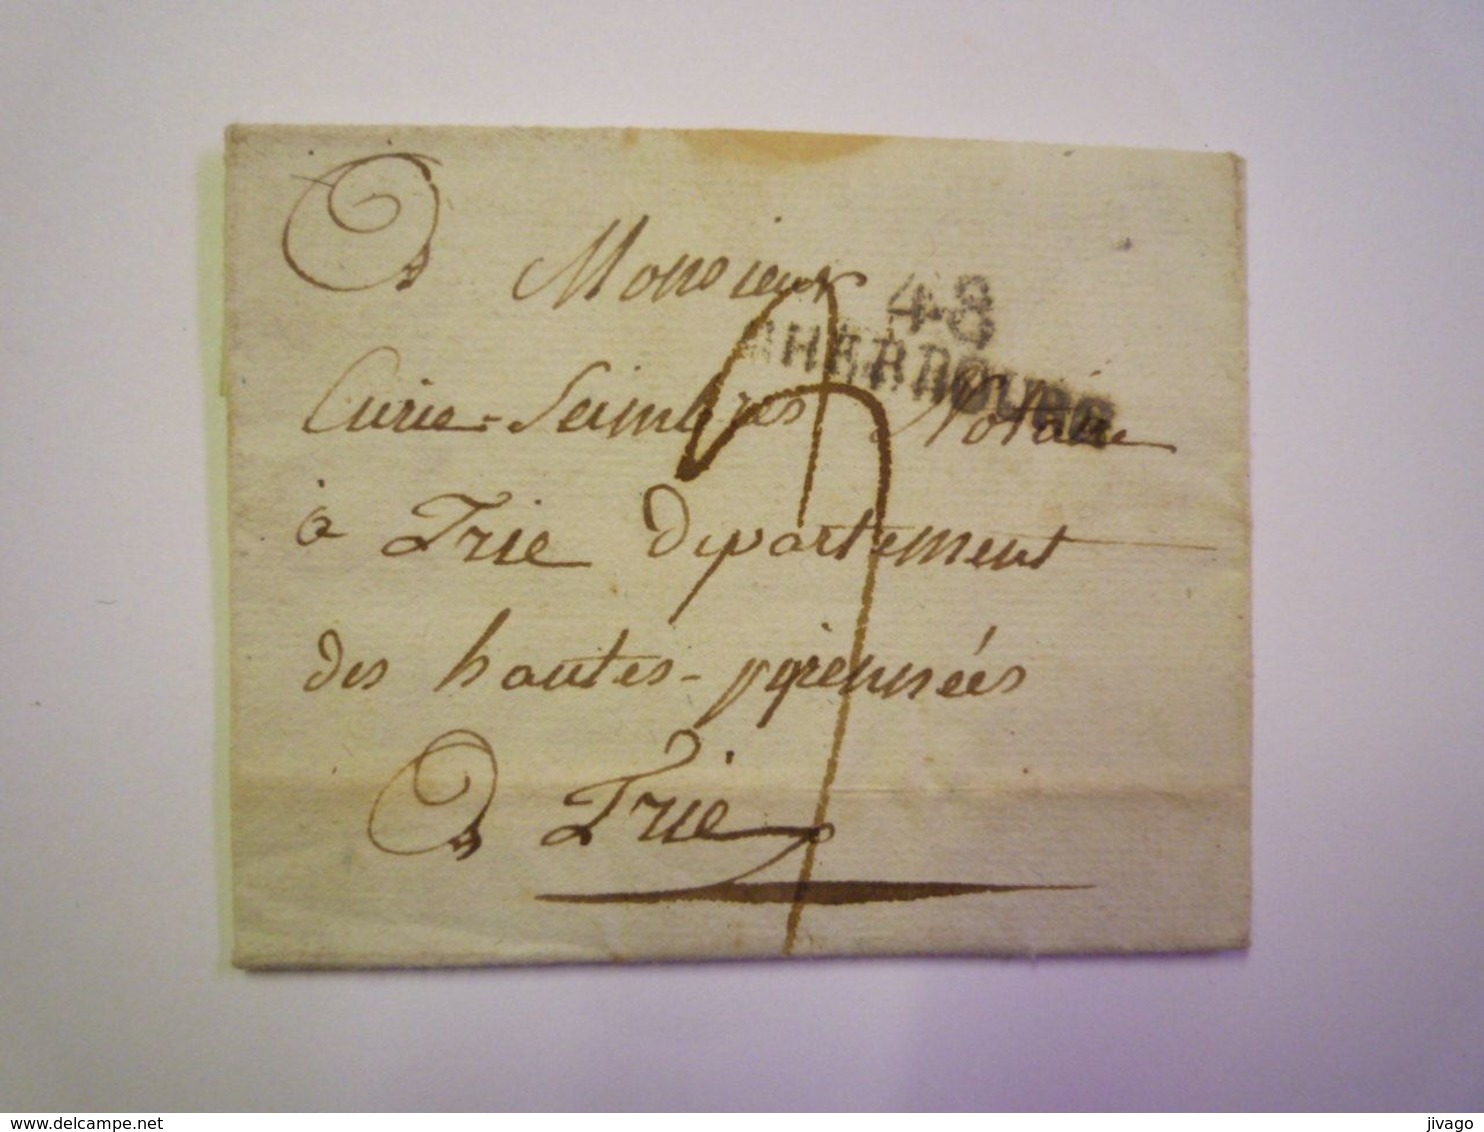 A Monsieur
48
CHERBOURG
Curie-Seimbres Notaire
à Trie Département
des hautes-pyrennées
A Trie
delcampe.net
jivago